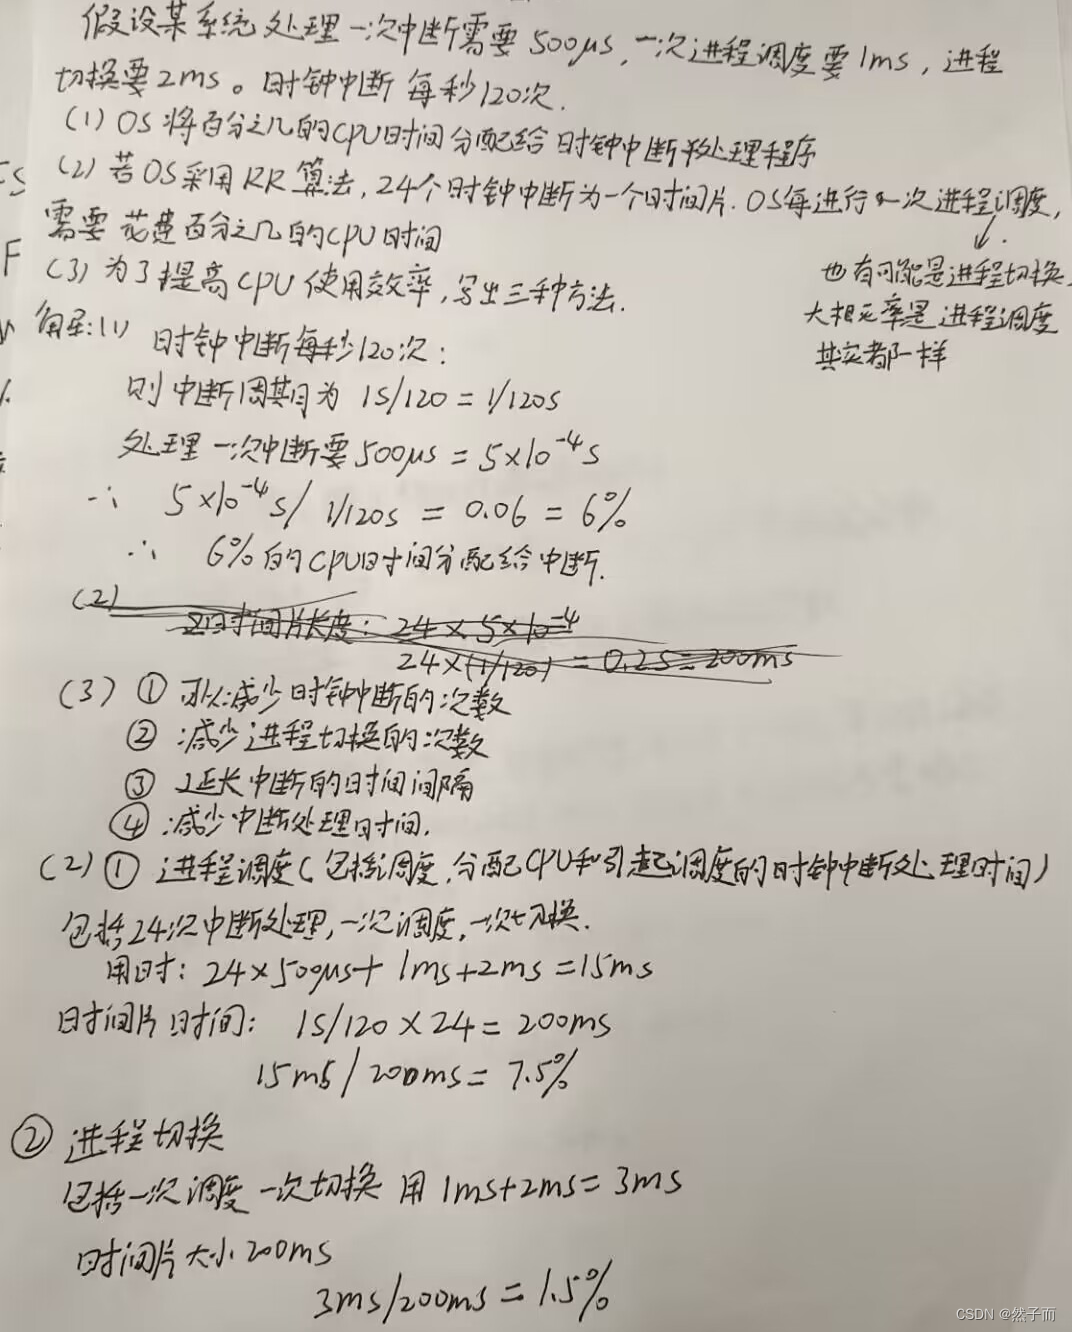 假设某系统处理一次中断需要500μs,一次进程调度要1ms,进程
切换要2ms。时钟中断每秒120次.
(1) OS将百分之几的CPU时间分配给时钟中断处理程序
(2) 若OS采用RR算法,24个时钟中断为一个时间片.OS每进行一次进程调度,
需要花费百分之几的CPU时间
也有可能是进程切换
大概率是进程调度
其实都一样
(3) 为了提高CPU使用效率,写出三种方法.
解:(1) 时钟中断每秒120次:
则中断周期为 1S/120 = 1/120s
处理一次中断要500μs = 5×10⁻⁴s
∵ 5×10⁻⁴s/ 1/120s = 0.06 = 6%
∴ 6%的CPU时间分配给中断.
(2)
时间片长度: 24×5×10⁻⁴
24×(1/120) = 0.2S = 200ms
(3) ① 可以减少时钟中断的次数
② 减少进程切换的次数
③ 延长中断的时间间隔
④ 减少中断处理时间.
(2) ① 进程调度(包括调度,分配CPU和引起调度的时钟中断处理时间)
包括24次中断处理,一次调度,一次切换.
用时: 24×500μs+ 1ms+2ms =15ms
时间片时间: 1S/120 ×24 = 200ms
15ms/200ms = 7.5%
② 进程切换
包括一次调度一次切换 用 1ms+2ms= 3ms
时间片大小200ms
3ms/200ms = 1.5%
CSDN @然子而